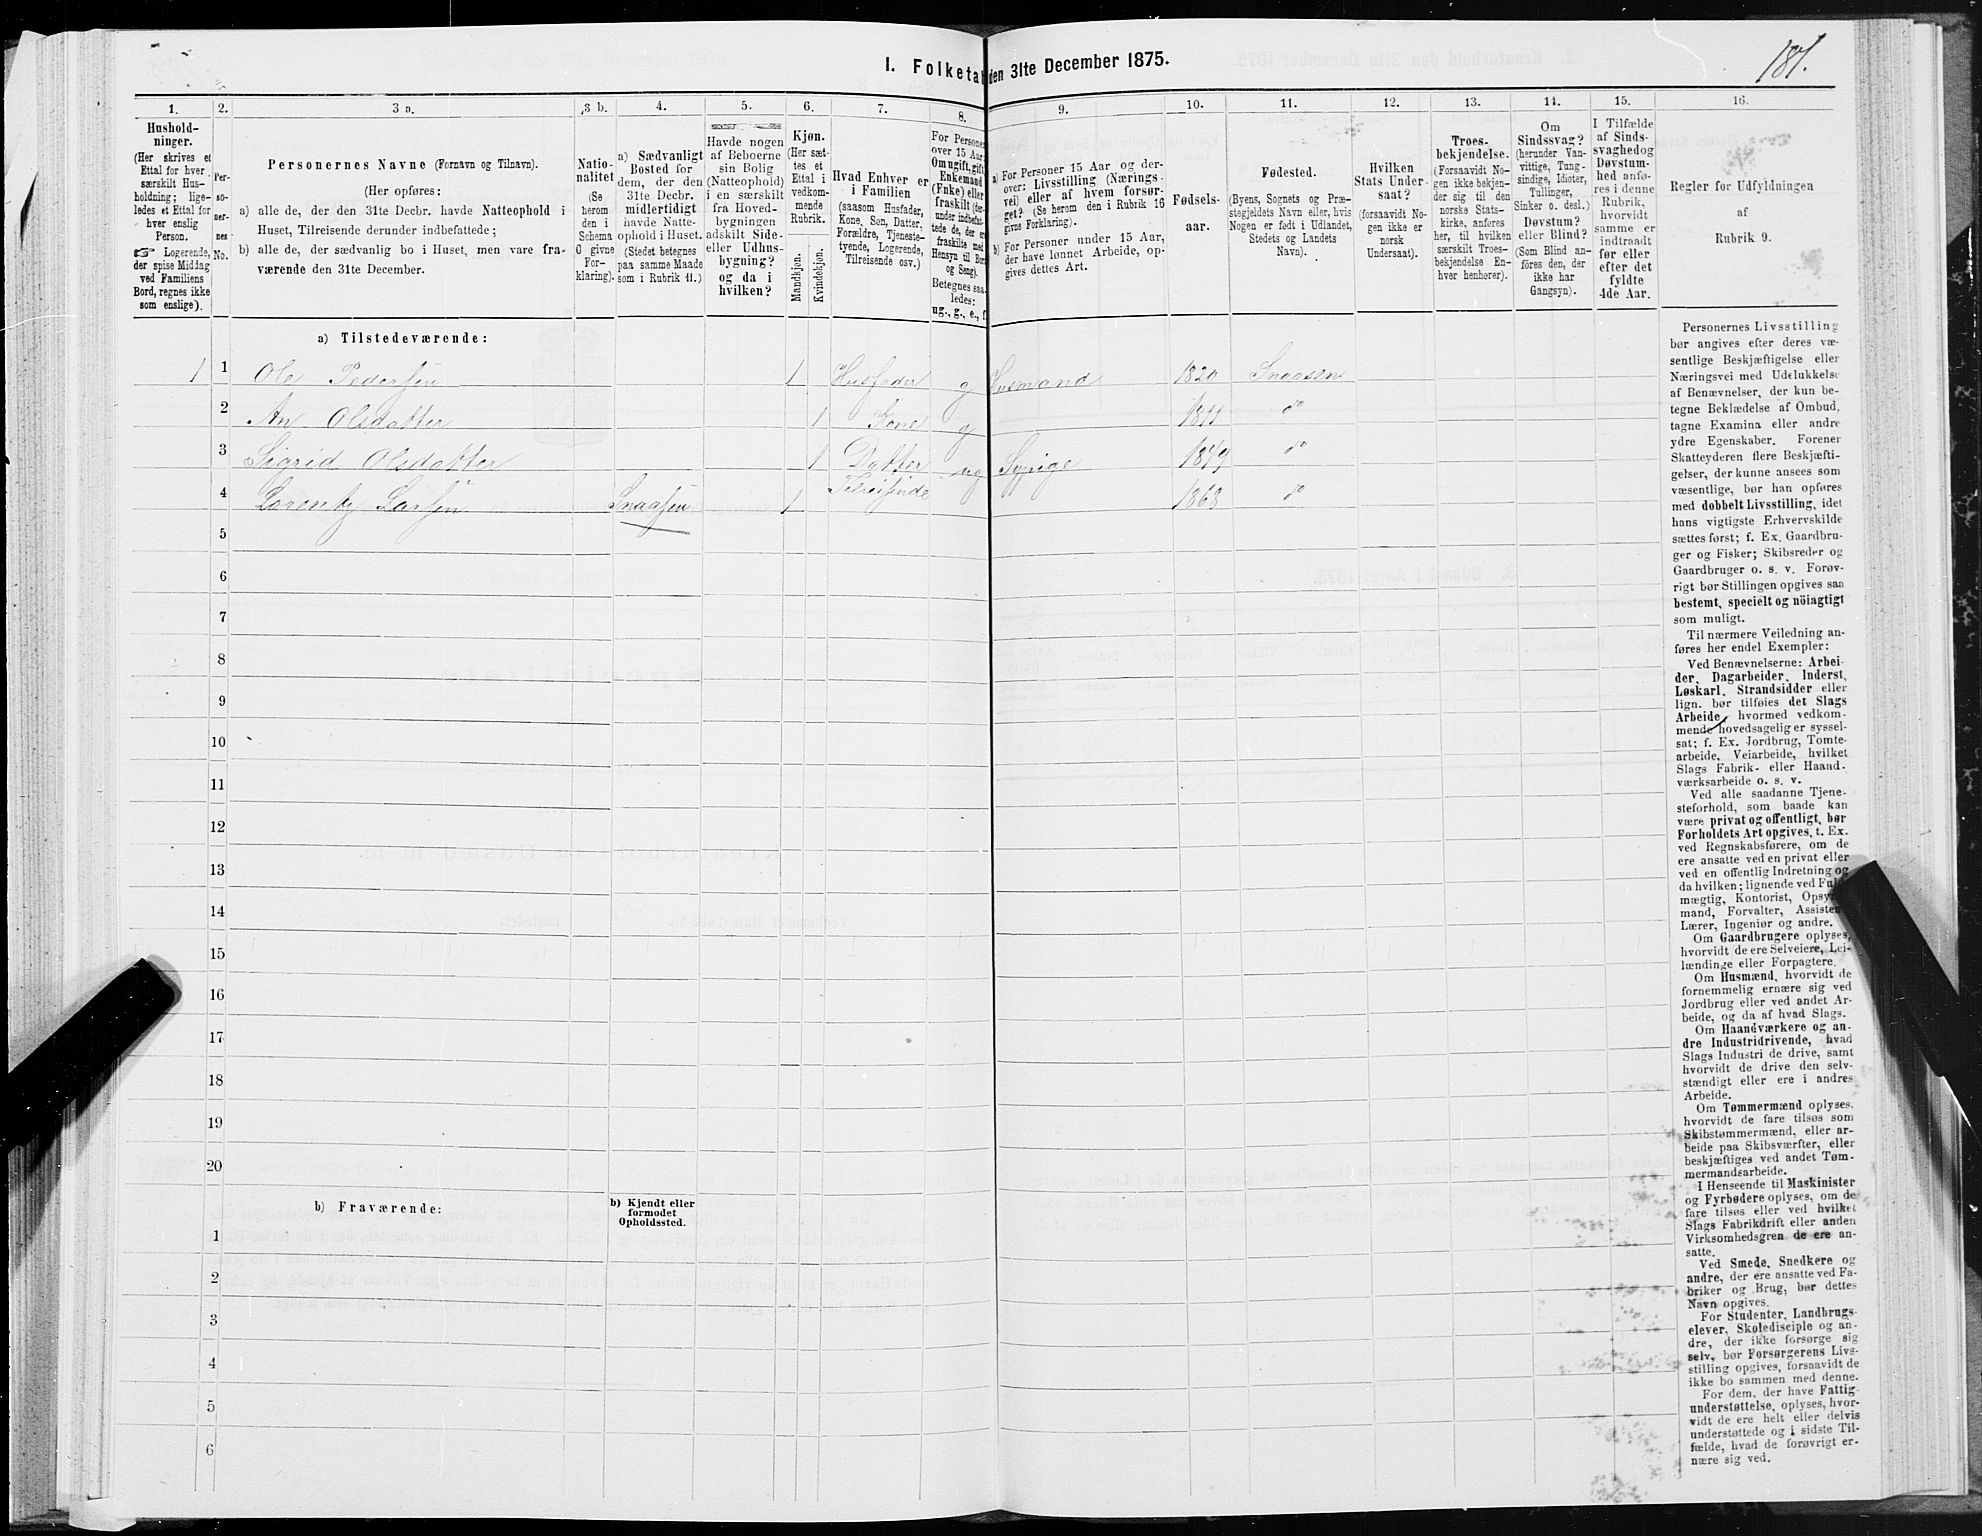 181.
I. Folketal den 31te December 1875.
1. 2. 3 a. 3 b. 4. 5. 6. 7. 8. 9. 10. 11. 12. 13. 14. 15. 16.
Hushold-
ninger.
(Her skrives et
Ettal for hver
særskilt Hus-
holdning; lige-
ledes et Ettal for
hver enslig
Person.
☞ Logerende,
der spise Middag
ved Familiens
Bord, regnes ikke
som enslige).
Per-
so-
ner-
nes
No.
Personernes Navne (Fornavn og Tilnavn).
(Her opføres:
a) alle de, der den 31te Decbr. havde Natteophold i
Huset, Tilreisende derunder indbefattede;
b) alle de, der sædvanlig bo i Huset, men vare fra-
værende den 31te December.
Natio-
nalitet
(Se
herom
den i
Schema
O givne
For-
klaring).
a) Sædvanligt
Bosted for
dem, der den
31te Decbr.
midlertidigt
havde Natte-
ophold i Huset.
(Stedet betegnes
paa samme Maade
som i Rubrik 11.)
Havde nogen
af Beboerne
sin Bolig
(Natteophold)
i en særskilt
fra Hoved-
bygningen
adskilt Side-
eller Udhus-
bygning?
og da i
hvilken?
Kjøn.
(Her sæt-
tes et
Ettal i
vedkom-
mende
Rubrik.
Mandkjøn.
Kvindekjøn.
Hvad Enhver er
i Familien
(saasom Husfader,
Kone, Søn, Datter,
Forældre, Tjeneste-
tyende, Logerende,
Tilreisende osv.)
For Personer
over 15 Aar:
Om ugift, gift,
Enkemand
(Enke) eller
fraskilt (der-
under indbefat-
tede de, der ere
fraskilte med
Hensyn til Bord
og Seng).
Betegnes saa-
ledes:
ug., g., e., f.
a) For Personer 15 Aar og der-
over: Livsstilling (Nærings-
vei) eller af hvem forsør-
get? (Se herom den i Rubrik 16
givne Forklaring).
b) For Personer under 15 Aar,
der have lønnet Arbeide, op-
gives dettes Art.
Fødsels-
aar.
Fødested.
(Byens, Sognets og Præ-
stegjeldets Navn eller, hvis
Nogen er født i Udlandet,
Stedets og Landets
Navn).
Hvilken
Stats Under-
saat?
(forsaavidt No-
gen ikke er
norsk
Undersaat).
Troes-
bekjendelse.
(Forsaavidt No-
gen ikke bekjen-
der sig til den
norske Stats-
kirke, anføres
her, til hvilken
særskilt Troes-
bekjendelse En-
hver henhører).
Om
Sindssvag?
(herunder Van-
vittige, Tung-
sindige, Idioter,
Tullinger,
Sinker o. desl.)
Døvstum?
eller Blind?
(Som Blind an-
føres den, der
ikke har
Gangsyn).
I Tilfælde
af Sinds-
svaghed og
Døvstum-
hed anfø-
res i denne
Rubrik,
hvorvidt
samme er
indtraadt
før eller
efter det
fyldte
4de Aar.
Regler for Udfyldningen
af
Rubrik 9.
a) Tilstedeværende:
1 1 Ole Pedersen 1 Husfader g Husmand 1820 Snaasen
2 An Olsdatter 1 Kone g 1811 do
3 Sigrid Olsdatter 1 Datter ug Sypige 1849 do
4 Lorents Larsen Snaasen 1 Tilreisende 1868 do
5
6
7
8
9
10
11
12
13
14
15
16
17
18
19
20
b) Fraværende:
b) Kjendt eller
formodet
Opholdssted.
1
2
3
4
5
6
Personernes Livsstilling
bør angives efter deres væ-
sentlige Beskjæftigelse eller
Næringsvei med Udelukkelse
af Benævnelser, der kun be-
tegne Beklædelse af Ombud,
tagne Examina eller andre
ydre Egenskaber. Forener
Skatteyderen flere Beskjæfti-
gelser, der kunne ansees som
væsentlige, bør han opføres
med dobbelt Livsstilling, idet
hans vigtigste Erhvervskilde
sættes først; f. Ex. Gaardbru-
ger og Fisker; Skibsreder og
Gaardbruger o. s. v. Forøv-
rigt bør Stillingen opgives saa
bestemt, specielt og nöiagtigt
som muligt.
Til nærmere Veiledning an-
føres her endel Exempler:
Ved Benævnelserne: Arbei-
der, Dagarbeider, Inderst,
Løskarl, Strandsidder eller
lign. bør tilføies det Slags
Arbeide, hvormed vedkom-
mende hovedsagelig er syssel-
sat; f. Ex. Jordbrug, Tomte-
arbeide, Veiarbeide, hvilket
Slags Fabrik- eller Haand-
værksarbeide o. s. v.
Ved alle saadanne Tjene-
steforhold, som baade kan
være privat og offentligt, bør
Forholdets Art opgives, t. Ex.
ved Regnskabsførere, om de
ere ansatte ved en privat eller
ved en offentlig Indretning og
da hvilken; lignende ved Fuld-
mægtig, Kontorist, Opsyns-
mand, Forvalter, Assistent,
Lærer, Ingeniør og andre.
Om Gaardbrugere oplyses,
hvorvidt de ere Selveiere, Lei-
lændinge eller Forpagtere.
Om Husmænd, hvorvidt de
fornemmelig ernære sig ved
Jordbrug eller ved andet Ar-
beide, og da af hvad Slags.
Om Haandværkere og an-
dre Industridrivende, hvad
Slags Industri de drive, samt
hvorvidt de drive den selv-
stændigt eller ere i andres
Arbeide.
Om Tømmermænd oplyses,
hvorvidt de fare tilsøs som
Skibstømmermænd, eller ar-
beide paa Skibsværfter, eller
beskjæftiges ved andet Tøm-
mermandsarbeide.
I Henseende til Maskinister
og Fyrbødere oplyses, om de
fare tilsøs eller ved hvilket
Slags Fabrikdrift eller anden
Virksomhedsgren de ere an-
satte.
Ved Smede, Snedkere og
andre, der ere ansatte ved Fa-
briker og Brug, bør dettes
Navn opgives.
For Studenter, Landbrugs-
elever, Skoledisciple og an-
dre, der ikke forsørge sig
selv, bør Forsørgerens Livs-
stilling opgives, forsaavidt de
ikke bo sammen med denne.
For dem, der have Fattig-
understøttelse, oplyses, hvor-
vidt de ere helt eller delvis
understøttede og i sidste Til-
fælde, hvad de forøvrigt er-
nære sig ved.